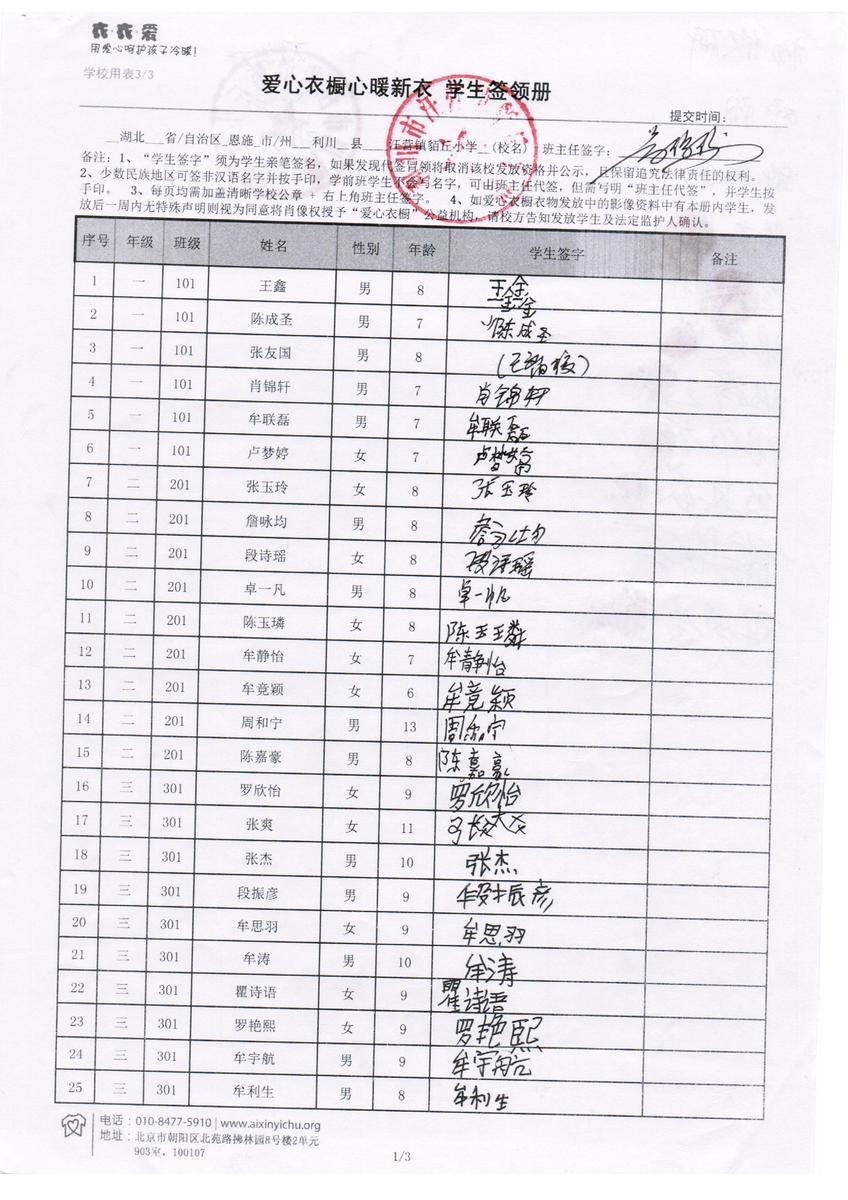 衣·衣·爱
用爱心呵护孩子冷暖!
学校用表3/3
爱心衣橱心暖新衣 学生签领册
提交时间:
湖北 省/自治区 恩施 市/州 利川 县 汪营镇貊丘小学 (校名) 班主任签字:
备注: 1、“学生签字”须为学生亲笔签名,如果发现代签冒领将取消该校发放资格并公示,且保留追究法律责任的权利。
2、少数民族地区可签非汉语名字并按手印,学前班学生不会写名字,可由班主任代签,但需写明“班主任代签”,并学生按
手印。 3、每页均需加盖清晰学校公章 + 右上角班主任签字。 4、如爱心衣橱衣物发放中的影像资料中有本册内学生,发
放后一周内无特殊声明则视为同意将肖像权授予“爱心衣橱”公益机构,请校方告知发放学生及法定监护人确认。
序号 年级 班级 姓名 性别 年龄 学生签字 备注
1 一 101 王鑫 男 8 王鑫
2 一 101 陈成圣 男 7 陈成圣
3 一 101 张友国 男 8
4 一 101 肖锦轩 男 7 肖锦轩
5 一 101 牟联磊 男 7 牟联磊
6 一 101 卢梦婷 女 7 卢梦婷
7 二 201 张玉玲 女 8 张玉玲
8 二 201 詹咏均 男 8 詹咏均
9 二 201 段诗瑶 女 8 段诗瑶
10 二 201 卓一凡 男 8 卓一凡
11 二 201 陈玉璘 女 8 陈玉璘
12 二 201 牟静怡 女 7 牟静怡
13 二 201 牟竟颖 女 6 牟竟颖
14 二 201 周和宁 男 13 周和宁
15 二 201 陈嘉豪 男 8 陈嘉豪
16 三 301 罗欣怡 女 9 罗欣怡
17 三 301 张爽 女 11 张爽
18 三 301 张杰 男 10 张杰
19 三 301 段振彦 男 9 段振彦
20 三 301 牟思羽 女 9 牟思羽
21 三 301 牟涛 男 10 牟涛
22 三 301 瞿诗语 女 9 瞿诗语
23 三 301 罗艳熙 女 9 罗艳熙
24 三 301 牟宇航 男 9 牟宇航
25 三 301 牟利生 男 8 牟利生
电话: 010-8477-5910 | www.aixinyichu.org
地址: 北京市朝阳区北苑路拂林园8号楼2单元
903室, 100107
1/3